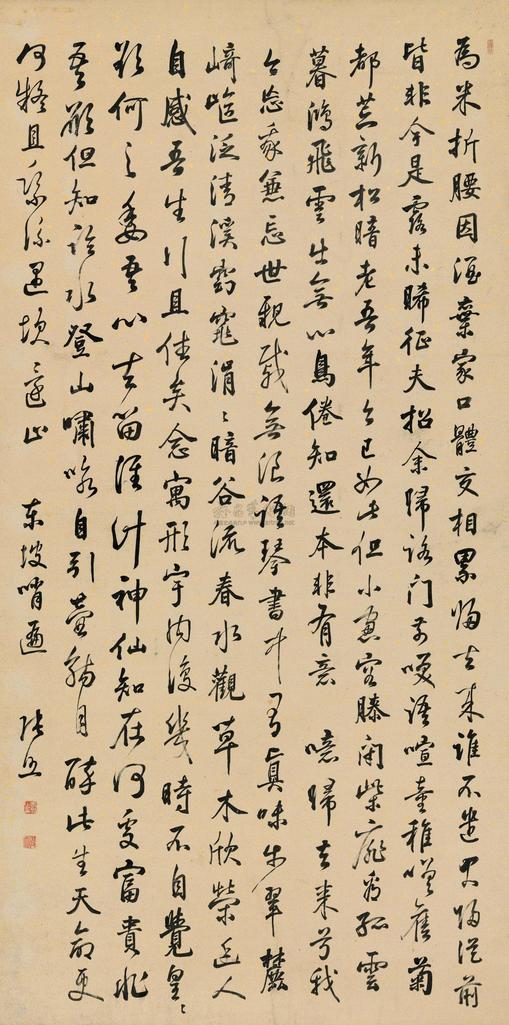 為米折腰因酒棄家口體交相累歸去來誰不遣君歸從前
皆非今是露未晞征夫指余歸路门前笑語喧童稚嗟舊菊
都荒新松暗老吾年今已如此但小窗容膝閉柴扉看孤雲
暮鴻飛雲出無心鳥倦知還本非有意 噫歸去來兮我
今忘我兼忘世親戚無浪語琴書中有真味步翠麓
崎嶇泛清溪窈窕涓〻暗谷流春水觀草木欣榮幽人
自感吾生行且休矣念寓形宇內復幾時不自覺皇〻
欲何之委吾心去留誰計神仙知在何處富貴非
吾願但知臨水登山嘯詠自引壺觴自醉此生天命更
何疑且乘流遇坎〻還止 東坡哨遍 張照